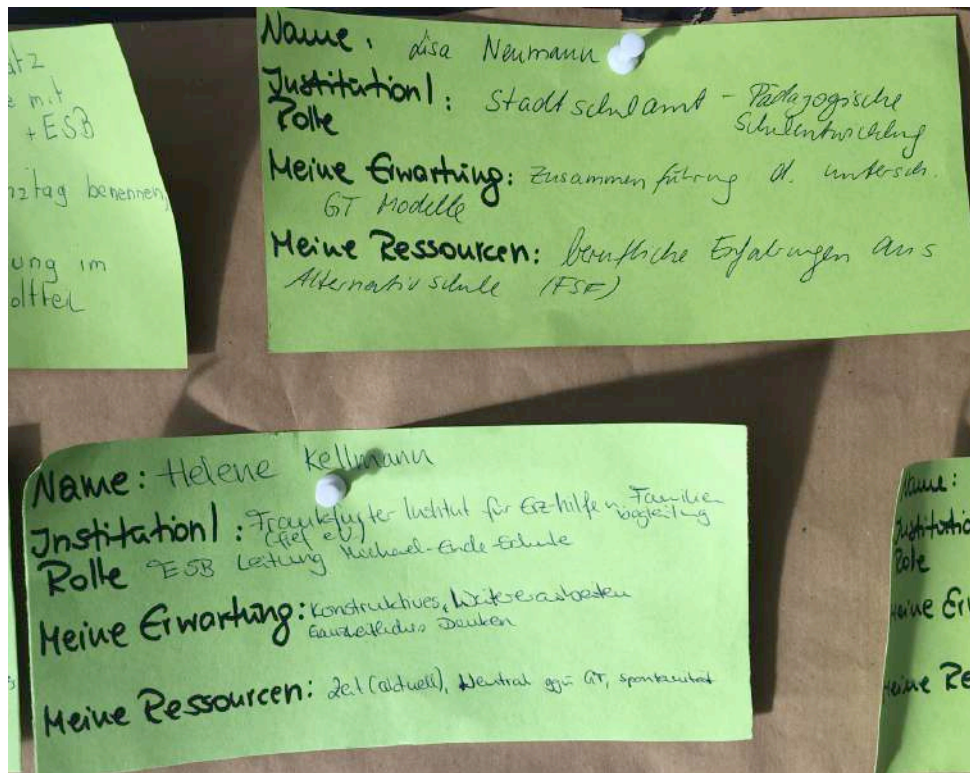 atz
mit
+ESB
nztag benennen
ung im
Name: Lisa Neumann
Institution/: Stadtschulamt - Pädagogische
Rolle Schulentwicklung
Meine Erwartung: Zusammenführung d. untersch.
GT Modelle
Meine Ressourcen: berufliche Erfahrungen aus
Alternativschule (FSF)
Name: Helene Kellmann
Institution/: Frankfurter Institut für Erz-hilfen Familien
begleitung
Rolle ESB Leitung Michael-Ende-Schule
Meine Erwartung: Konstruktives, Weiterarbeiten
Ganzheitliches Denken
Meine Ressourcen: Zeit (aktuell), Neutral ggü GT, spontanität
Name:
Institutio
Rolle
Meine Er
Meine Re